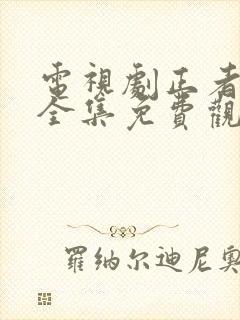 電視劇正者
全集免費觀
羅纳尔迪尼奥